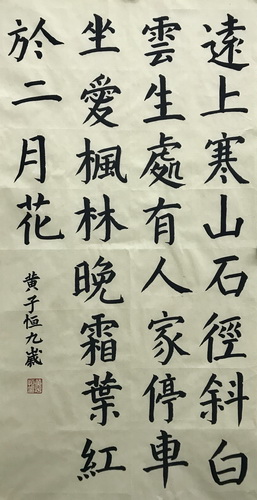 遠上寒山石徑斜白
雲生處有人家停車
坐愛楓林晚霜葉紅
於二月花
黄子恒九歲